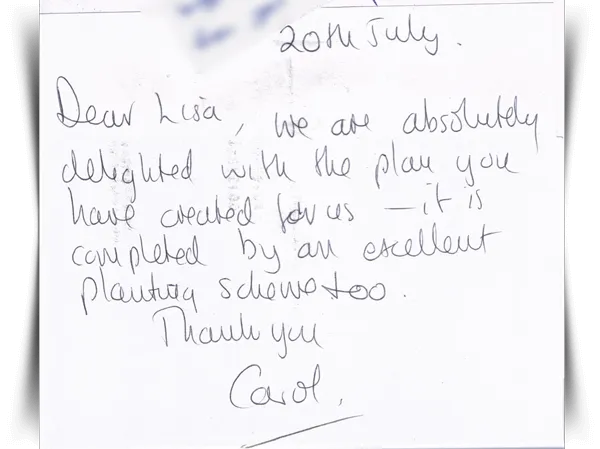 20th July.
Dear Lisa, we are absolutely
delighted with the plan you
have created for us – it is
completed by an excellent
planting scheme too.
Thank you
Carol.